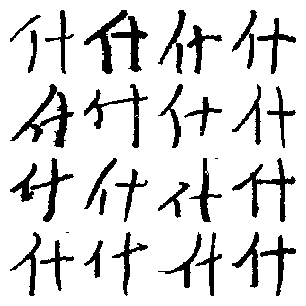 什什什什
什什什什
什什什什
什什什什